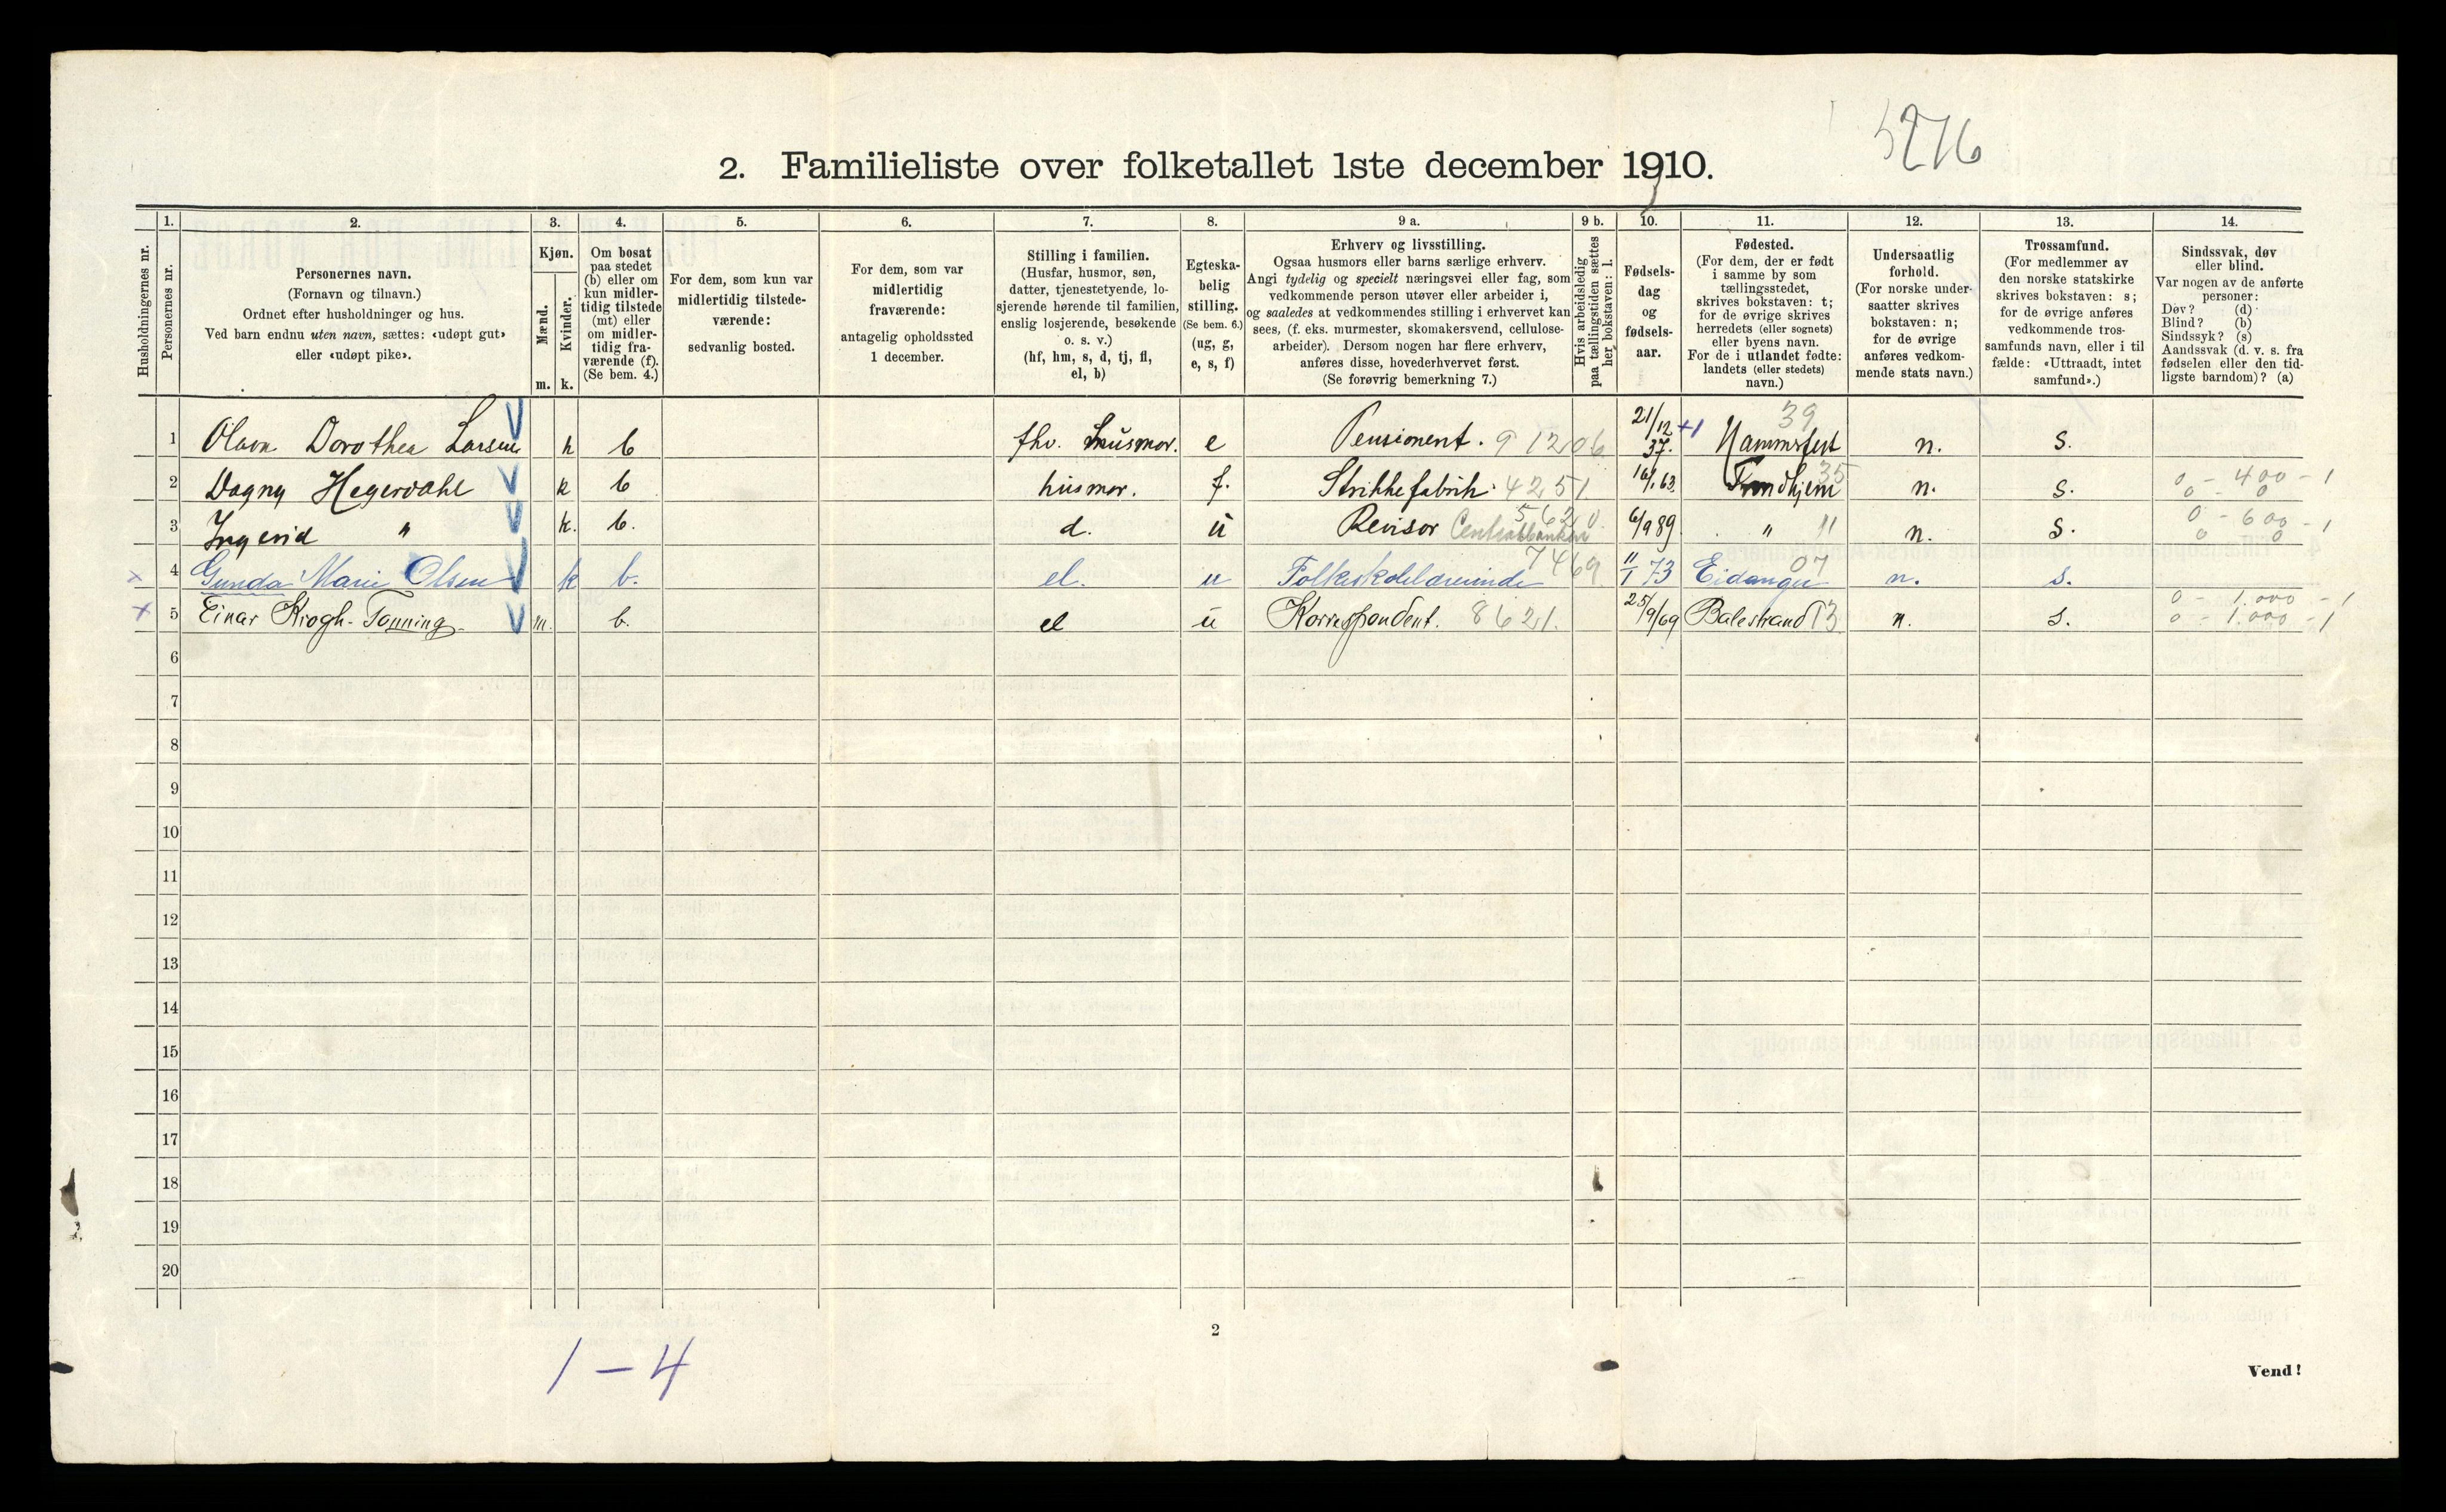 5276
2. Familieliste over folketallet 1ste december 1910.
Husholdningernes nr.
1.
Personernes nr.
2.
Personernes navn.
(Fornavn og tilnavn.)
Ordnet efter husholdninger og hus.
Ved barn endnu uten navn, sættes: «udøpt gut»
eller «udøpt pike».
3.
Kjøn.
Mænd.
Kvinder.
m. k.
4.
Om bosat
paa stedet
(b) eller om
kun midler-
tidig tilstede
(mt) eller
om midler-
tidig fra-
værende (f).
(Se bem. 4.)
5.
For dem, som kun var
midlertidig tilstede-
værende:
sedvanlig bosted.
6.
For dem, som var
midlertidig
fraværende:
antagelig opholdssted
1 december.
7.
Stilling i familien.
(Husfar, husmor, søn,
datter, tjenestetyende, lo-
sjerende hørende til familien,
enslig losjerende, besøkende
o. s. v.)
(hf, hm, s, d, tj, fl,
el, b)
8.
Egteska-
belig
stilling.
(Se bem. 6.)
(ug, g,
e, s, f)
9 a.
Erhverv og livsstilling.
Ogsaa husmors eller barns særlige erhverv.
Angi tydelig og specielt næringsvei eller fag, som
vedkommende person utøver eller arbeider i,
og saaledes at vedkommendes stilling i erhvervet kan
sees, (f. eks. murmester, skomakersvend, cellulose-
arbeider). Dersom nogen har flere erhverv,
anføres disse, hovederhvervet først.
(Se forøvrig bemerkning 7.)
9 b.
Hvis arbeidsledig
paa tællingstiden sættes
her bokstaven: l.
10.
Fødsels-
dag
og
fødsels-
aar.
11.
Fødested.
(For dem, der er født
i samme by som
tællingsstedet,
skrives bokstaven: t;
for de øvrige skrives
herredets (eller sognets)
eller byens navn.
For de i utlandet fødte:
landets (eller stedets)
navn.)
12.
Undersaatlig
forhold.
(For norske under-
saatter skrives
bokstaven: n;
for de øvrige
anføres vedkom-
mende stats navn.)
13.
Trossamfund.
(For medlemmer av
den norske statskirke
skrives bokstaven: s;
for de øvrige anføres
vedkommende tros-
samfunds navn, eller i til
fælde: «Uttraadt, intet
samfund».)
14.
Sindssvak, døv
eller blind.
Var nogen av de anførte
personer:
Døv? (d)
Blind? (b)
Sindssyk? (s)
Aandssvak (d. v. s. fra
fødselen eller den tid-
ligste barndom)? (a)
1 Olava Dorothea Larsen k b fhv. husmor. e Pensionent. 91206 21/12 37. +1 Hammerfest 39 n. s.
2 Dagny Hegerdahl k b husmor. f. Strikkefabrik 4251 16/1 63. Trondhjem 35 n. s. 0 - 400 - 1
0 - 0
3 Ingerid " k. b. d. u Revisor Centralbanken 5620. 6/9 89 " 11 n. s. 0 - 600 - 1
0 0
4 Gunda Marie Olsen k b. el. u Folkeskolelærerinde 7469 11/1 73 Eidanger 07 n. s.
5 Einar Krogh-Tonning m. b. el u Korrespondent. 8621. 25/9/69 Balestrand 13 n. s. 0 - 1.000 - 1
0 - 1.000 - 1
6
7
8
9
10
11
12
13
14
15
16
17
18
19
20
2
1 - 4
Vend!